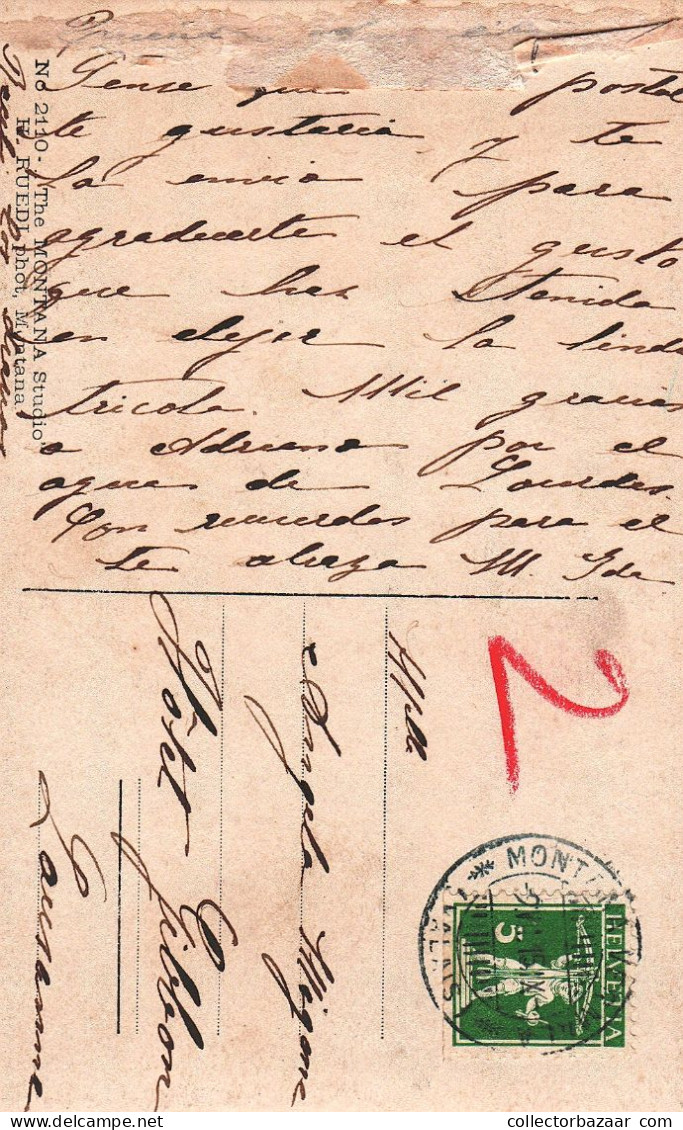 Pense que postal
te gustaria y te
la envio para
agradecerte el gusto
que has tenido
en elejir la linda
tricota. Mil gracias
a Adriana por el
agua de Lourdes.
Con recuerdos para el
te abraza M. Ide
No 2110 - "The MONTANA Studio"
H. RUEDI, phot, Montana
Mlle
Angela Migone
Hôtel Gibbon
Lausanne
2
MONTANA
5
HELVETIA
collectorbazaar.com